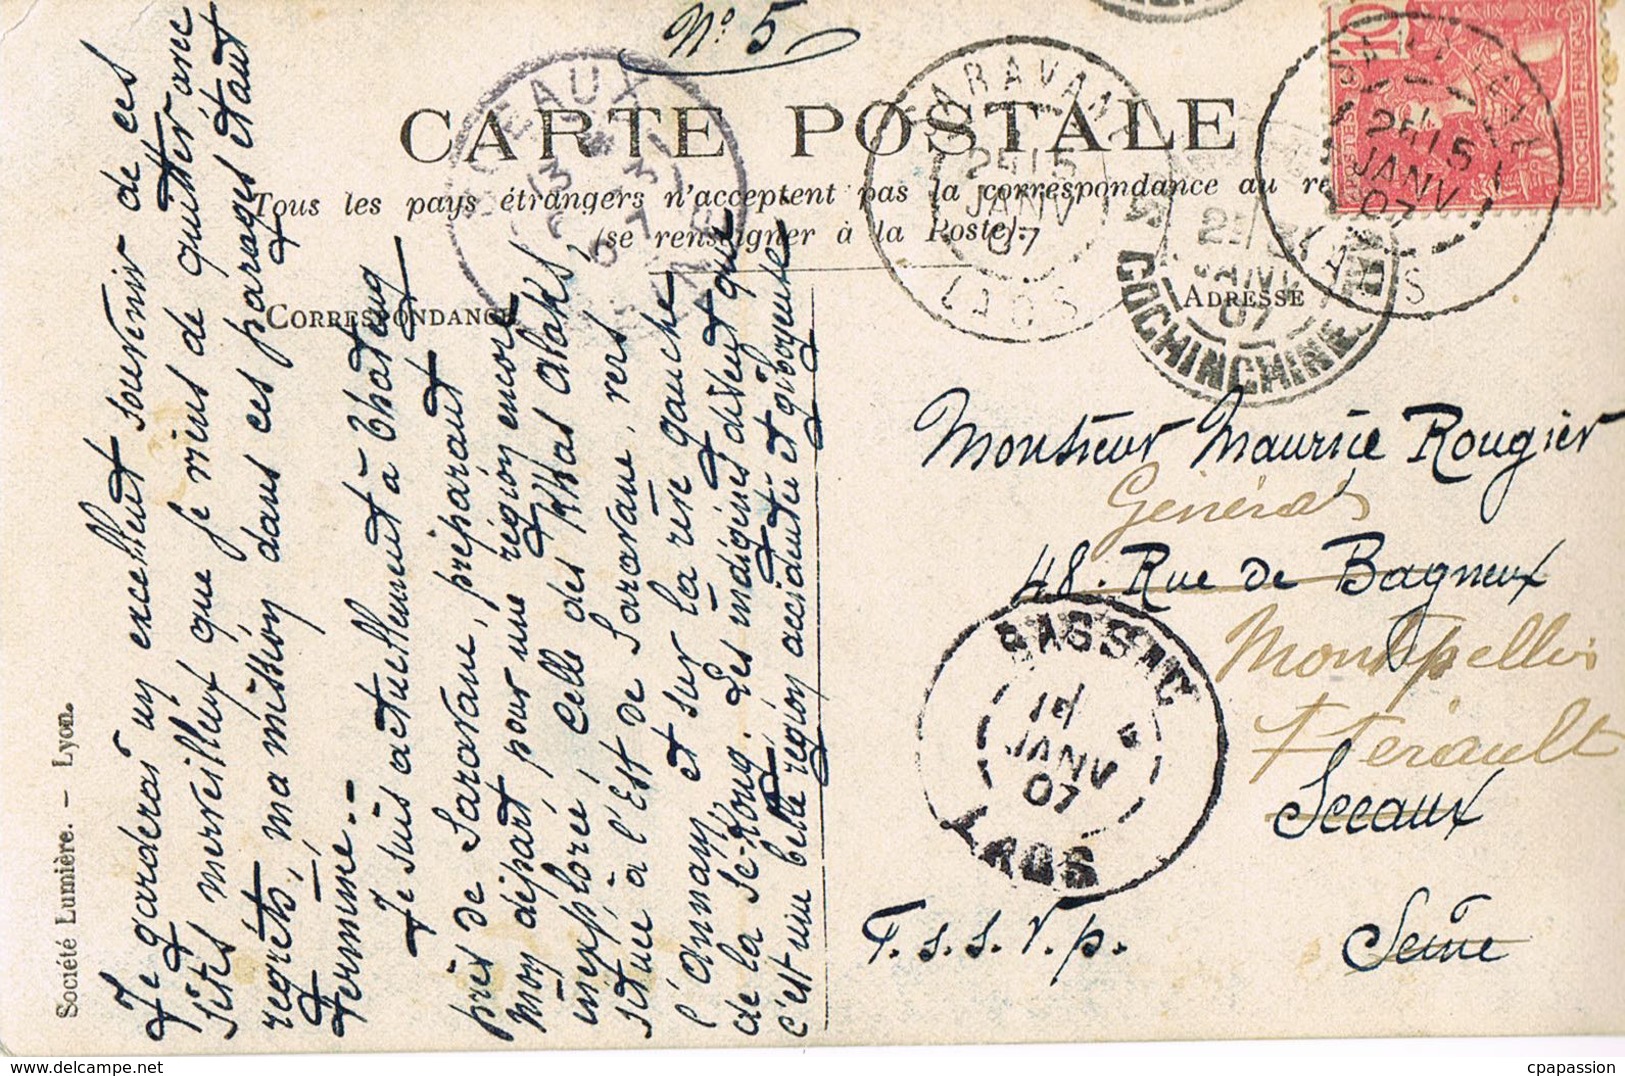 N° 5
CARTE POSTALE
Tous les pays étrangers n'acceptent pas la correspondance au re
(se renseigner à la Poste).
CORRESPONDANCE
ADRESSE
Société Lumière. — Lyon.
Je garderai un excellent souvenir de ces
sites merveilleux que je viens de quitter avec
regrets, ma mission dans ces parages étant
terminée.-
Je suis actuellement à Thateng
près de Saravane, préparant
mon départ pour une région encore
inexplorée, celle des Khas Alaks,
située à l'Est de Saravane, vers
l'Annam, et sur la rive gauche
de la Sé-Kong. Les indigènes disent que
c'est une belle région accidentée et giboyeuse
Monsieur Maurice Rougier
Générat
48. Rue de Bagneux
Montpellier
Hérault
Sceaux
Seine
T.s.s.V.p.
10
INDOCHINE FRANÇAISE
SARAVANE
25 15
JANV
07
LAOS
SARAVANE
25 15
JANV
07
LAOS
COCHINCHINE
JANV
07
BASSAC
JANV
07
LAOS
SCEAUX
13
3
07